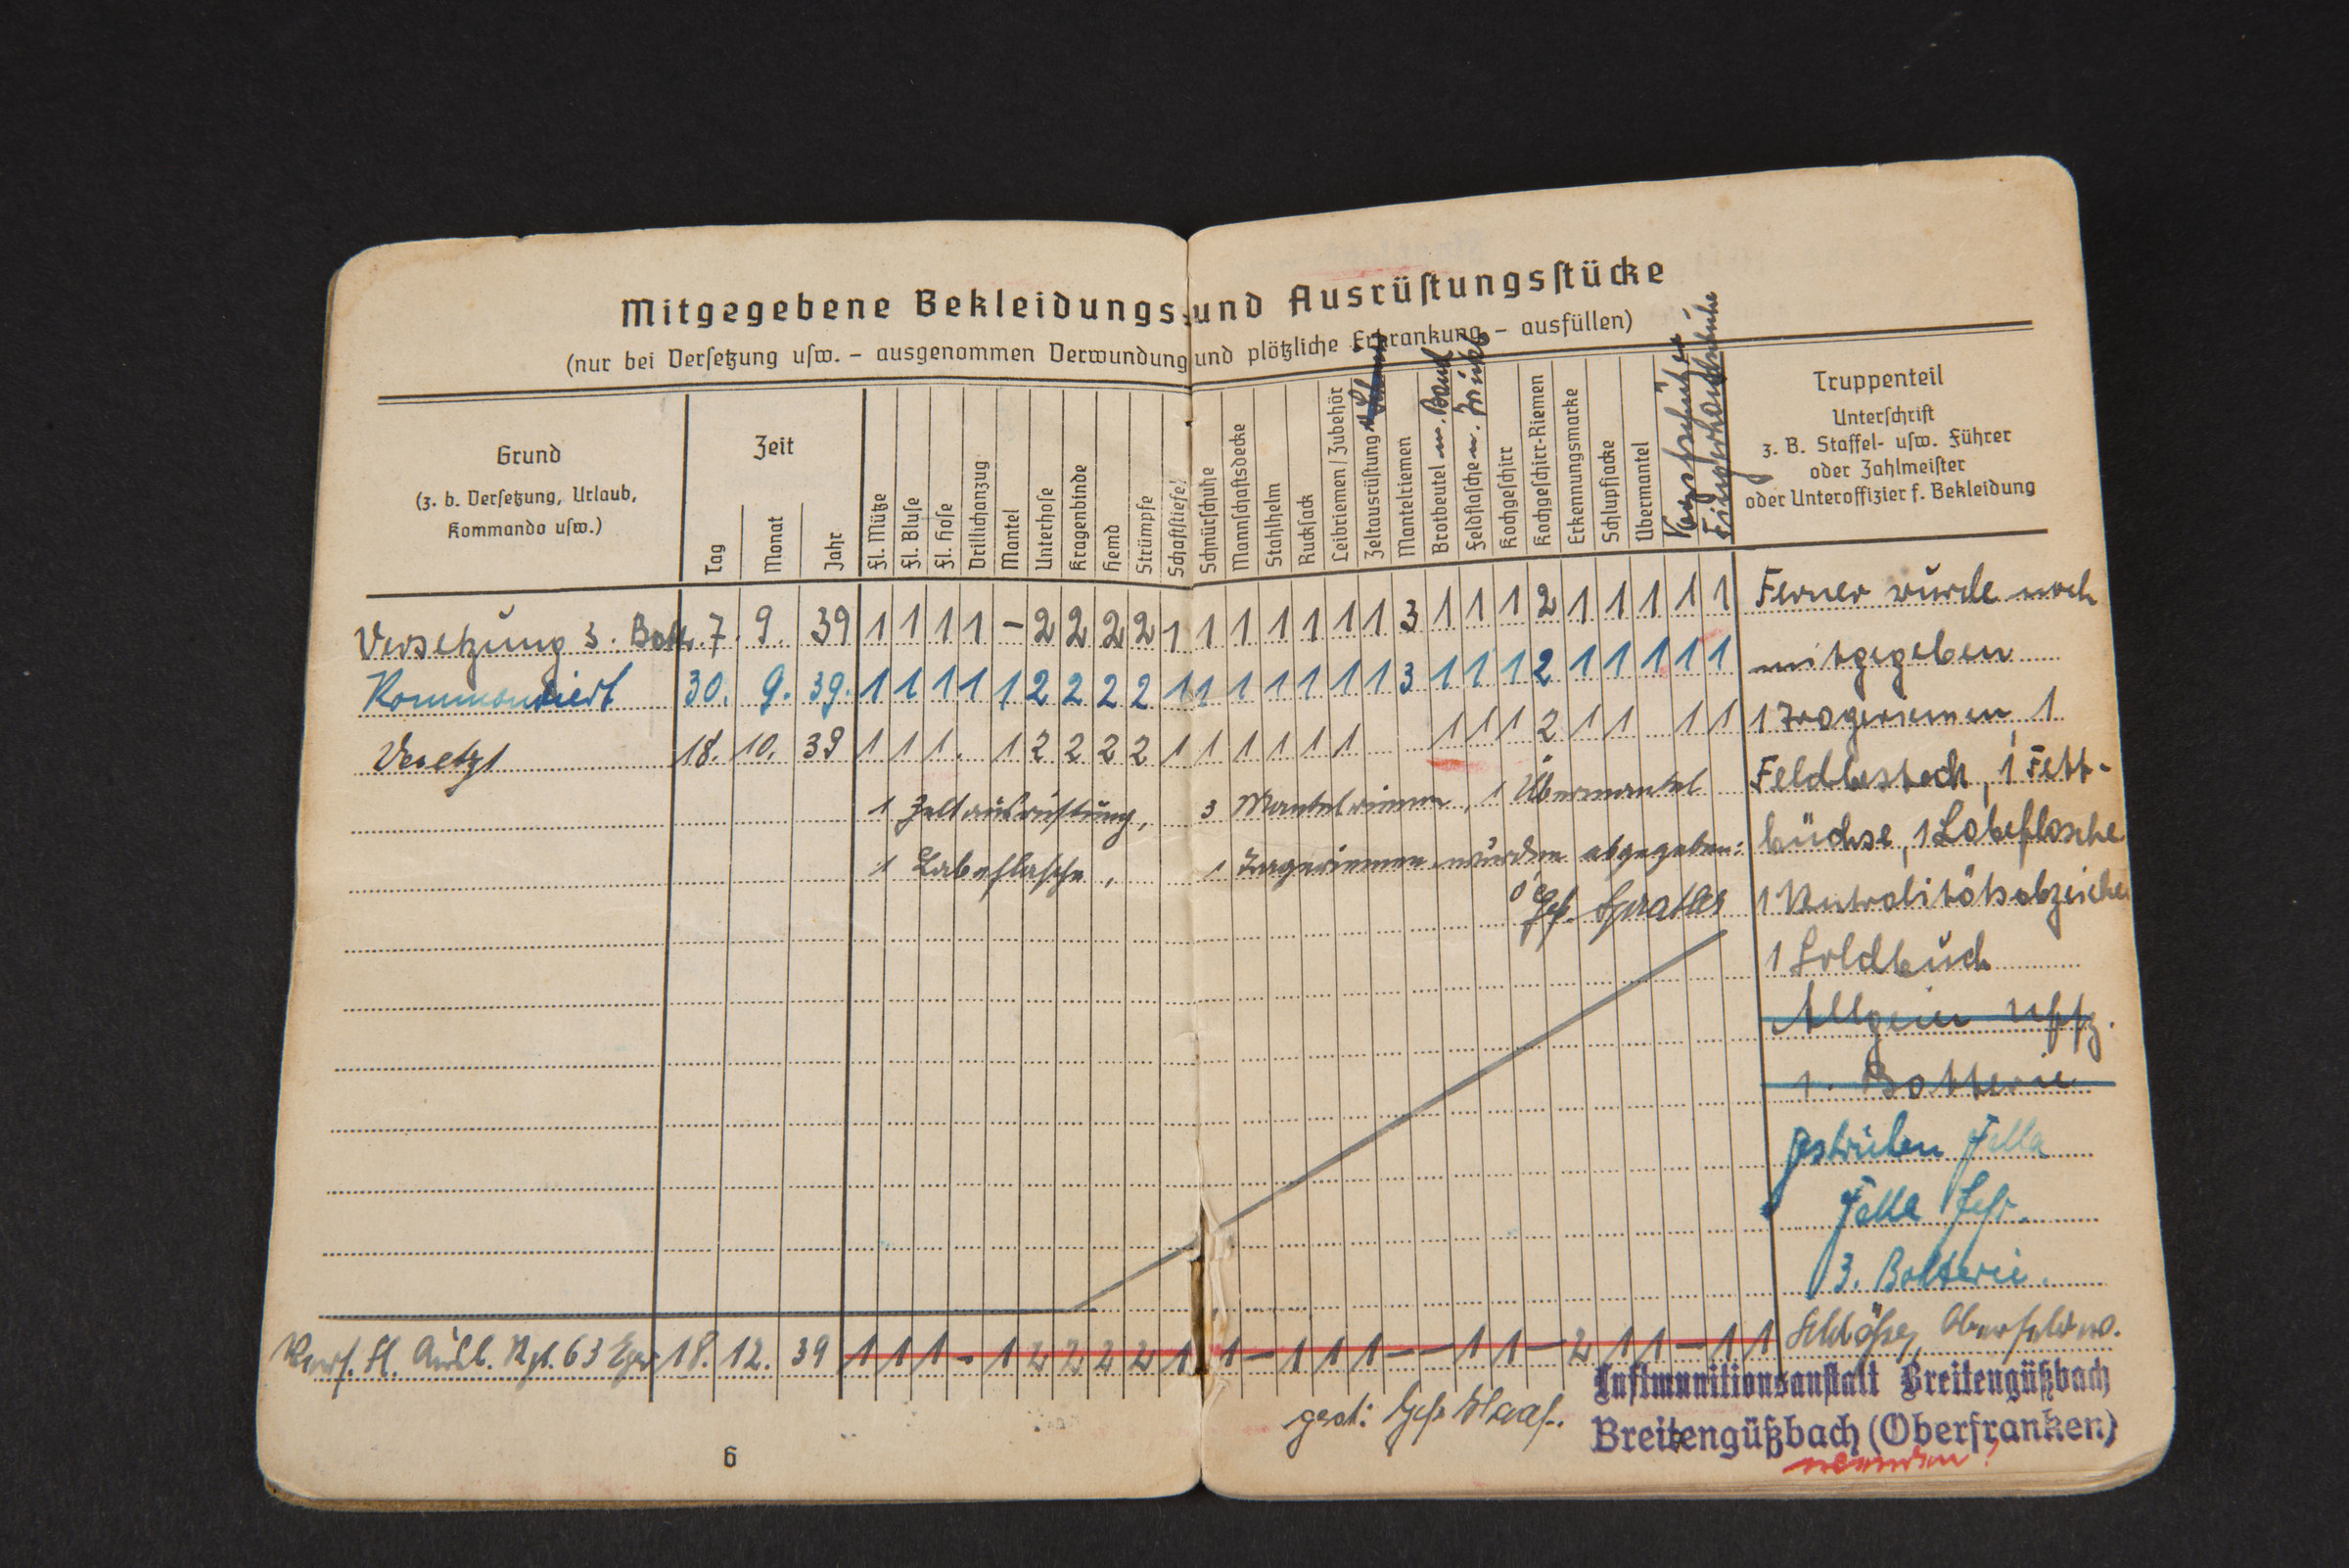 Mitgegebene Bekleidungs- und Ausrüstungsstücke
(nur bei Versetzung usw. – ausgenommen Verwundung und plötzliche Erkrankung – ausfüllen)
Grund
(z. b. Versetzung, Urlaub,
Kommando usw.)
Zeit
Tag
Monat
Jahr
Fl. Mütze
Fl. Bluse
Fl. Hose
Drillichanzug
Mantel
Unterhose
Kragenbinde
Hemd
Strümpfe
Schaftstiefel
Schnürschuhe
Mannschaftsdecke
Stahlhelm
Rucksack
Leibriemen/Zubehör
Zeltausrüstung
Mantelriemen
Brotbeutel m. Band
Feldflasche m.
Kochgeschirr
Kochgeschirr-Riemen
Erkennungsmarke
Schlupfjacke
Übermantel
Kopfschützer
Fingerhandschuhe
Truppenteil
Unterschrift
z. B. Staffel- usw. Führer
oder Zahlmeister
oder Unteroffizier f. Bekleidung
Versetzung 3. Batt. 7. 9. 39 1 1 1 1 – 2 2 2 2 1 1 1 1 1 1 1 3 1 1 1 2 1 1 1 1 1 Ferner wurde noch
Kommandiert 30. 9. 39. 1 1 1 1 1 2 2 2 2 1 1 1 1 1 1 1 3 1 1 1 2 1 1 1 1 1 mitgegeben
Versetzt 18. 10. 39 1 1 1 . 1 2 2 2 2 1 1 1 1 1 1 1 1 1 2 1 1 1 1 1 Trageriemen, 1
1 Zeltausrüstung, 3 Mantelriemen, 1 Übermantel Feldbesteck, 1 Fett-
1 Labeflasche, 1 Trageriemen wurden abgegeben: büchse, 1 Labeflasche
Gefr. 1 Neutralitätsabzeichen
1 Soldbuch
Uffz.
1. Batterie
gestrichen Fella
Fella Gefr.
3. Batterie.
Vers. Fl. Ausb. Rgt. 63 Eger 18. 12. 39 1 1 1 – 1 2 2 2 2 1 1 – 1 1 1 – – 1 1 – 2 1 1 – 1 1 Oberfeldw.
Luftmunitionsanstalt Breitengüßbach
gest: Gefr. Haas.
Breitengüßbach (Oberfranken)
wenden!
6